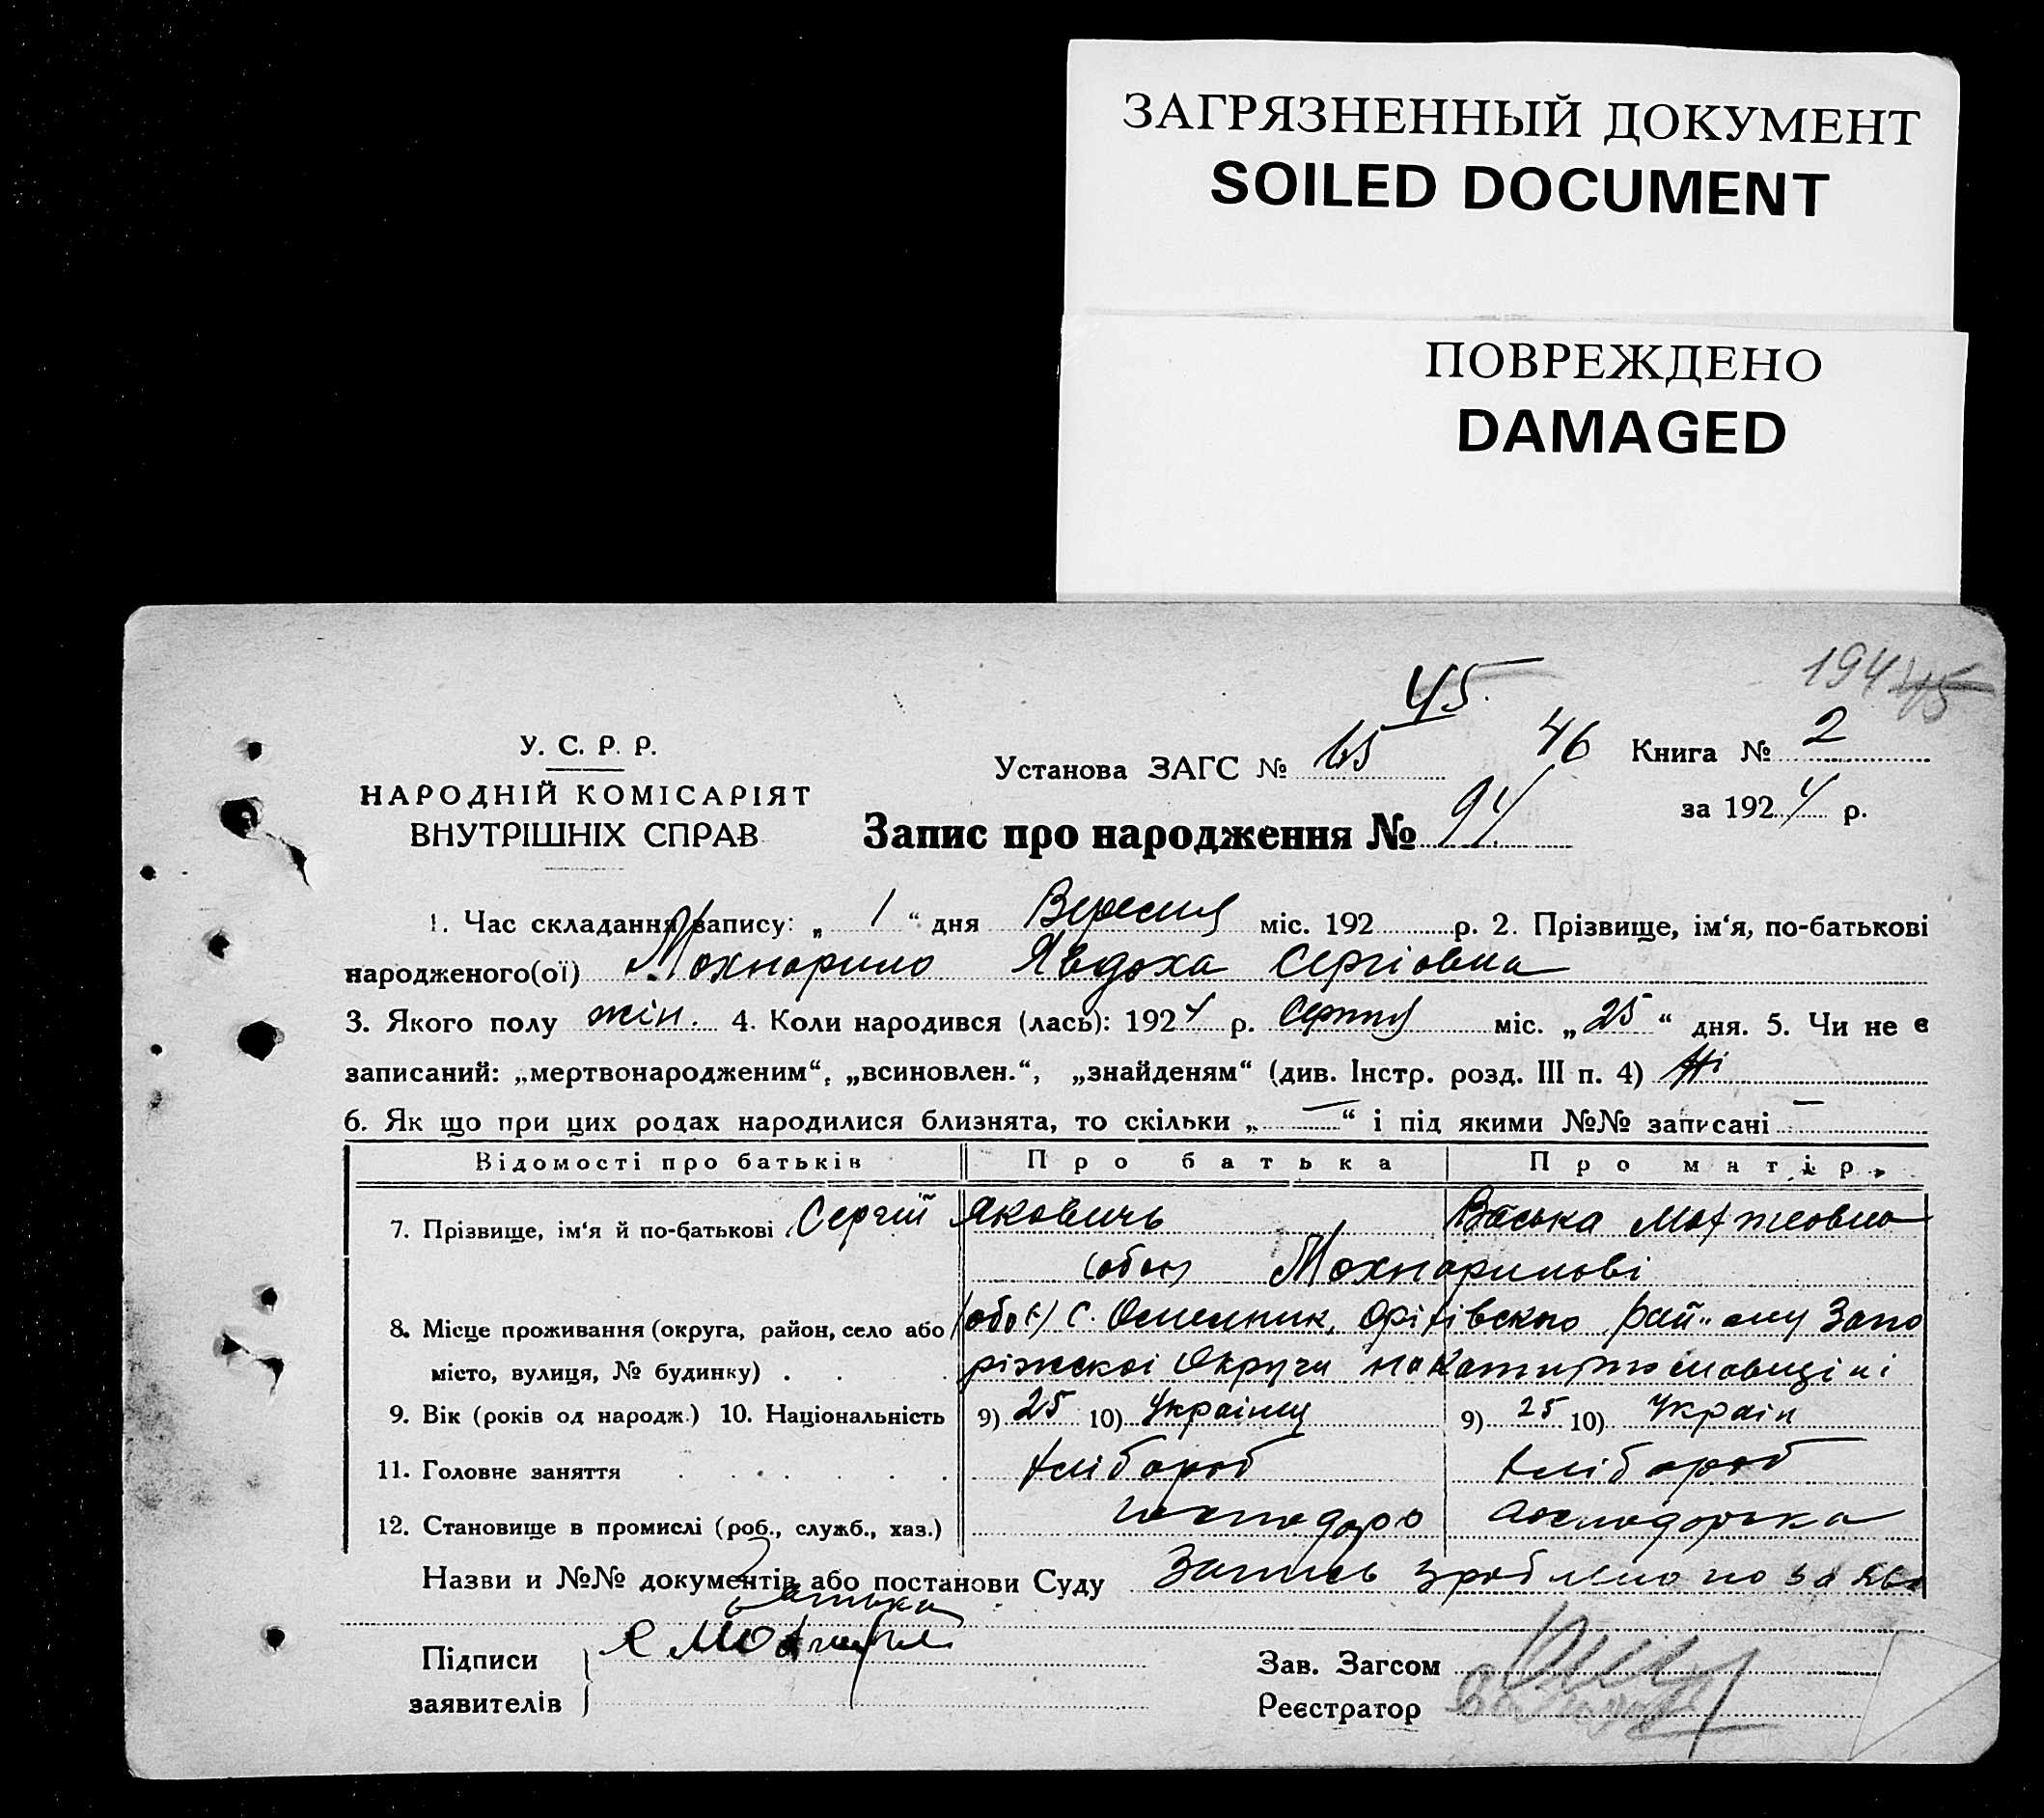 ЗАГРЯЗНЕННЫЙ ДОКУМЕНТ
SOILED DOCUMENT
ПОВРЕЖДЕНО
DAMAGED
194 45
45
У. С. Р. Р.
НАРОДНІЙ КОМІСАРІЯТ
ВНУТРІШНІХ СПРАВ
Установа ЗАГС № 65 46 Книга № 2
Запис про народження № 94 за 1924 р.
1. Час складання запису: „ 1 “ дня Вересня міс. 192 р. 2. Прізвище, ім‘я, по-батькові
народженого(ої) Явдоха Сергіовна
3. Якого полу жін. 4. Коли народився (лась): 1924 р. Серпня міс. „ 25 “ дня. 5. Чи не є
записаний: „мертвонародженим“, „всиновлен.“, „знайденям“ (див. Інстр. розд. III п. 4) Ні
6. Як що при цих родах народилися близнята, то скільки „ — “ і під якими №№ записані —
Відомості про батьків Про батька Про матір
7. Прізвище, ім‘я й по-батькові Сергій Якович Васька
(обоє)
8. Місце проживання (округа, район, село або (обоє) с. Оріхівского Запо
місто, вулиця, № будинку) . . . ріжскоі Округи на
9. Вік (років од народж.) 10. Національність 9) 25 10) Українц 9) 25 10) Україн
11. Головне заняття хлібороб хлібороб
12. Становище в промислі (роб., служб., хаз.) господарь господарка
Назви и №№ документів або постанови Суду Запись зроблено по заяві
батька
Підписи
заявителів
Зав. Загсом
Реєстратор